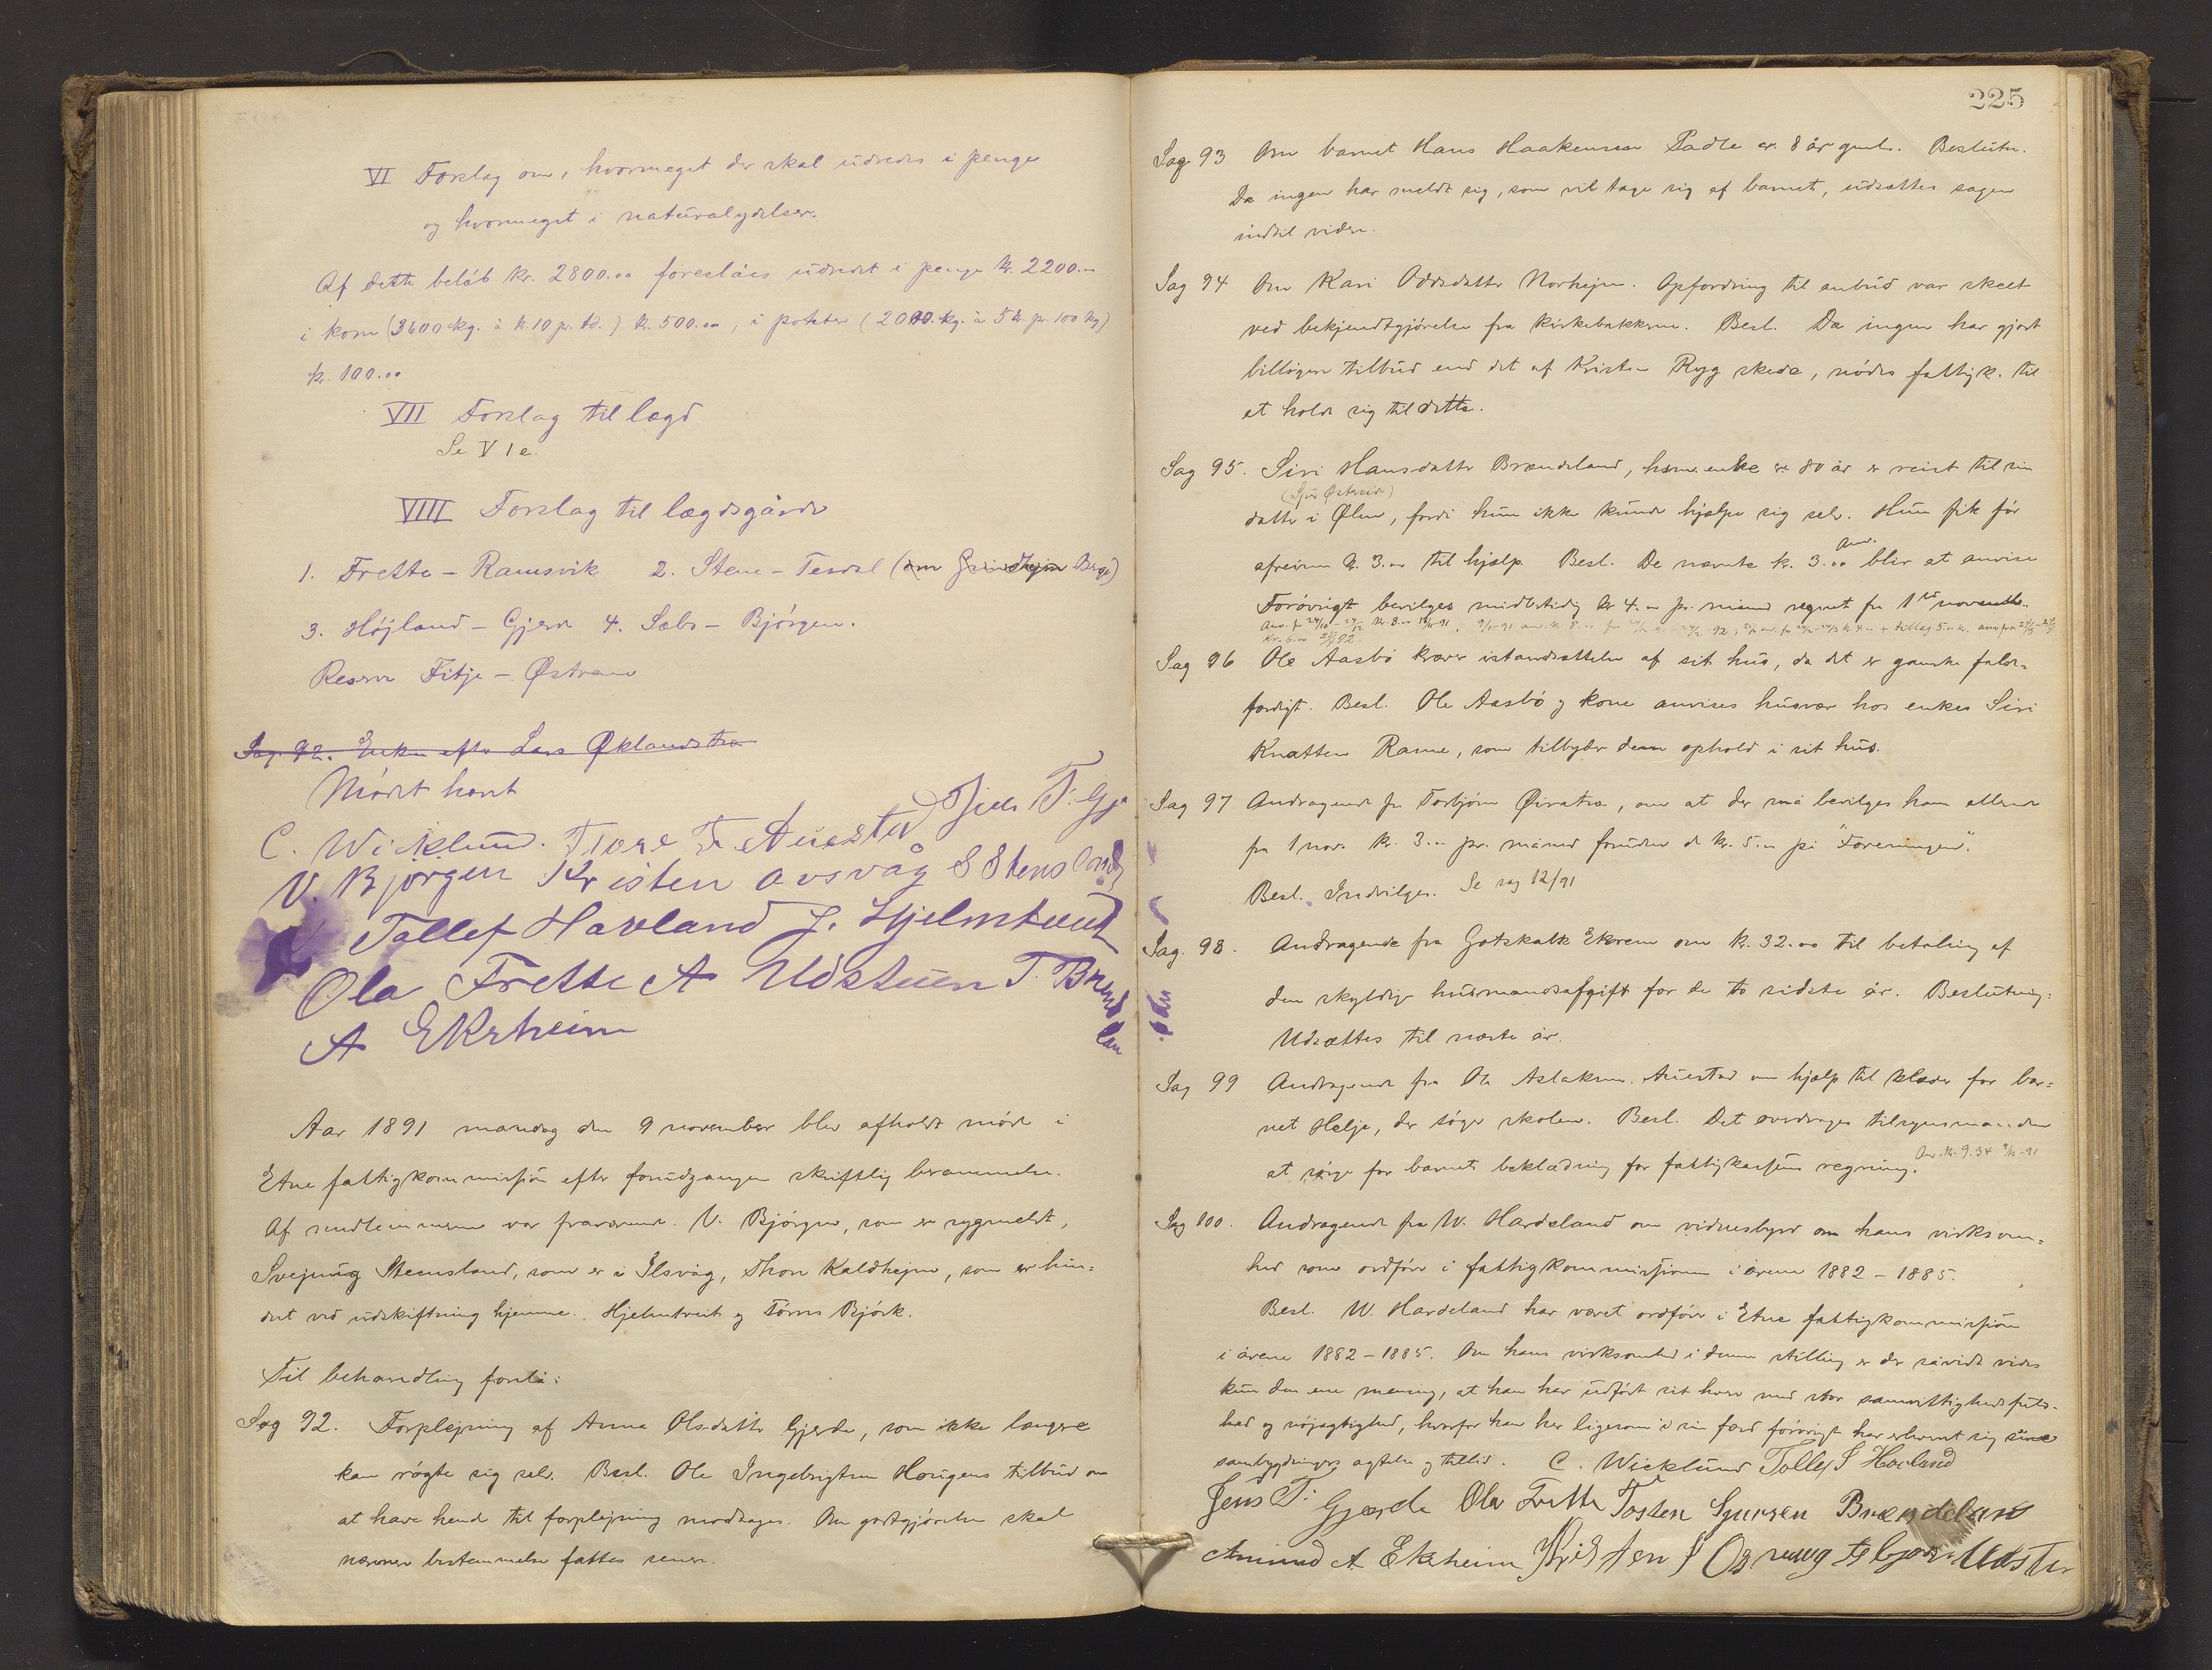 VI Forslag om, hvormeget der skal udredes i penge
og hvormeget i naturalydelser.
Af dette beløb kr. 2800.00 foreslåes udredet i penge kr. 2200.00
i korn (3600 kg. à kr. 10 pr. td.) kr. 500.00, i poteter (2000 kg. à 5 kr. pr. 100 kg)
kr. 100.00
VII Forslag til lægd
Se V 1 e.
VIII Forslag til lægdsgårde
1. Frette - Ramsvik 2. Stene - Tesdal (om Grindhejm Berge)
3. Højland - Gjerde 4. Sæbø - Bjørgen.
Reserve Fitje - Østrem
Sag. 92. Enken efter Lars Øklandstræ
Mødet hævet
C. Wicklund. Tore T. Auestad Jens T. Gje
V. Bjørgen Kristen Osvåg S Stensland
Tollef Havland J. Hjelmtveit
Ola Frette A Udstuen T. Brændeland
A Ekrheim
Aar 1891 mandag den 9 november blev afholdt møde i
Etne fattigkommission efter forudgangen skriftlig berammelse.
Af medlemmerne var fraværende. V. Bjørgen, som er sygmeldt,
Svejnung Stensland, som er i Ølsvåg, Thore Kaldhejm, som er hin-
dret ved udskiftning hjemme. Hjelmtveit og Tørres Bjørk.
Til behandling forelå:
Sag 92. Forplejning af Anna Olsdatter Gjerde, som ikke længere
kan røgte sig selv. Besl. Ole Ingebrigtsen Haugens tilbud om
at have hende til forplejning modtages. Om godtgjørelsen skal
nærmere bestemmelse fattes senere.
225
Sag 93 Om barnet Hans Haakensen Tadle er 8 år gml. Beslutn.
Da ingen har meldt sig, som vil tage sig af barnet, udsættes sagen
indtil videre.
Sag 94 Om Kari Oddsdatter Norhejm. Opfordring til anbud var skeet
ved bekjendtgjørelse fra kirkebakkerne. Besl. Da ingen har gjort
billigere tilbud end det af Kristen Ryg skede, nødes fattigk. til
at holde sig til dette.
Sag 95. Siri Hansdatter Brændeland, husm. enke er 80 år er reist til sin
(Sjur Østervik)
datter i Ølen, fordi hun ikke kunde hjælpe sig selv. Hun fik før
afreisen kr. 3.00 til hjælp. Besl. De nævnte kr. 3.00 blir at anvise
Anv.
Forøvrigt beviges midlertidig kr 4.00 pr. måned regnet fra 1ste november.
Sag 96 Ole Aasbø kræver istandsættelse af sit hus, da det er ganske falde-
færdigt. Besl. Ole Aasbø og kone anvises husvær hos enken Siri
Knatten Rame, som tilbyder dem ophold i sit hus.
Sag 97 Andragende fra Torbjørn Øiratræ, om at der må bevilges ham allerede
fra 1 nov. kr. 3.00 pr. måned foruden de kr. 5.00 på "Foreningen".
Besl. Indvilges. Se sag 12/91
Sag. 98. Andragende fra Gotskalk Ekrem om kr. 32.00 til betaling af
den skyldige husmandsafgift for de to sidste år. Beslutning:
Udsættes til næste år.
Sag 99 Andragende fra Ole Aslaksen Auestad om hjælp til klæder for bar-
net Helje, der søger skolen. Besl. Det overdrages tilsynsmanden
at sørge for barnets beklædning for fattigkassens regning. Anv. kr. 9.34 9/11-91
Sag 100. Andragende fra W. Hardeland om vidnesbyrd om hans virksom-
hed som ordfører i fattigkommissionen i årene 1882 - 1885.
Besl. W. Hardeland har været ordfører i Etne fattigkommission
i årene 1882 - 1885. Om hans virksomhed i denne stilling er der såvidt vides
kun den ene mening, at han har udført sit hverv med stor samvittighedsfuld-
hed og nøjagtighed, hvorfor han her ligesom i sin færd forøvrigt har erhvervet sig sine
sambygdingers agtelse og tillid. C. Wicklund Tollef S Havland
Jens T. Gjærde Ola Frette Tosten Sjursen Brændeland
Amund A. Ekrheim Kristen J Osvaag Udstu